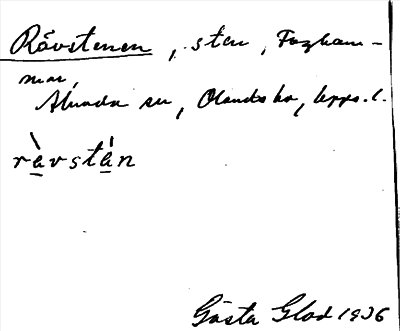 Råvstenen, sten, Fagham-
mar,
Alunda sn, Olands hd, Upps. l.
rà̱vstà̱n
Gösta Glad 1936